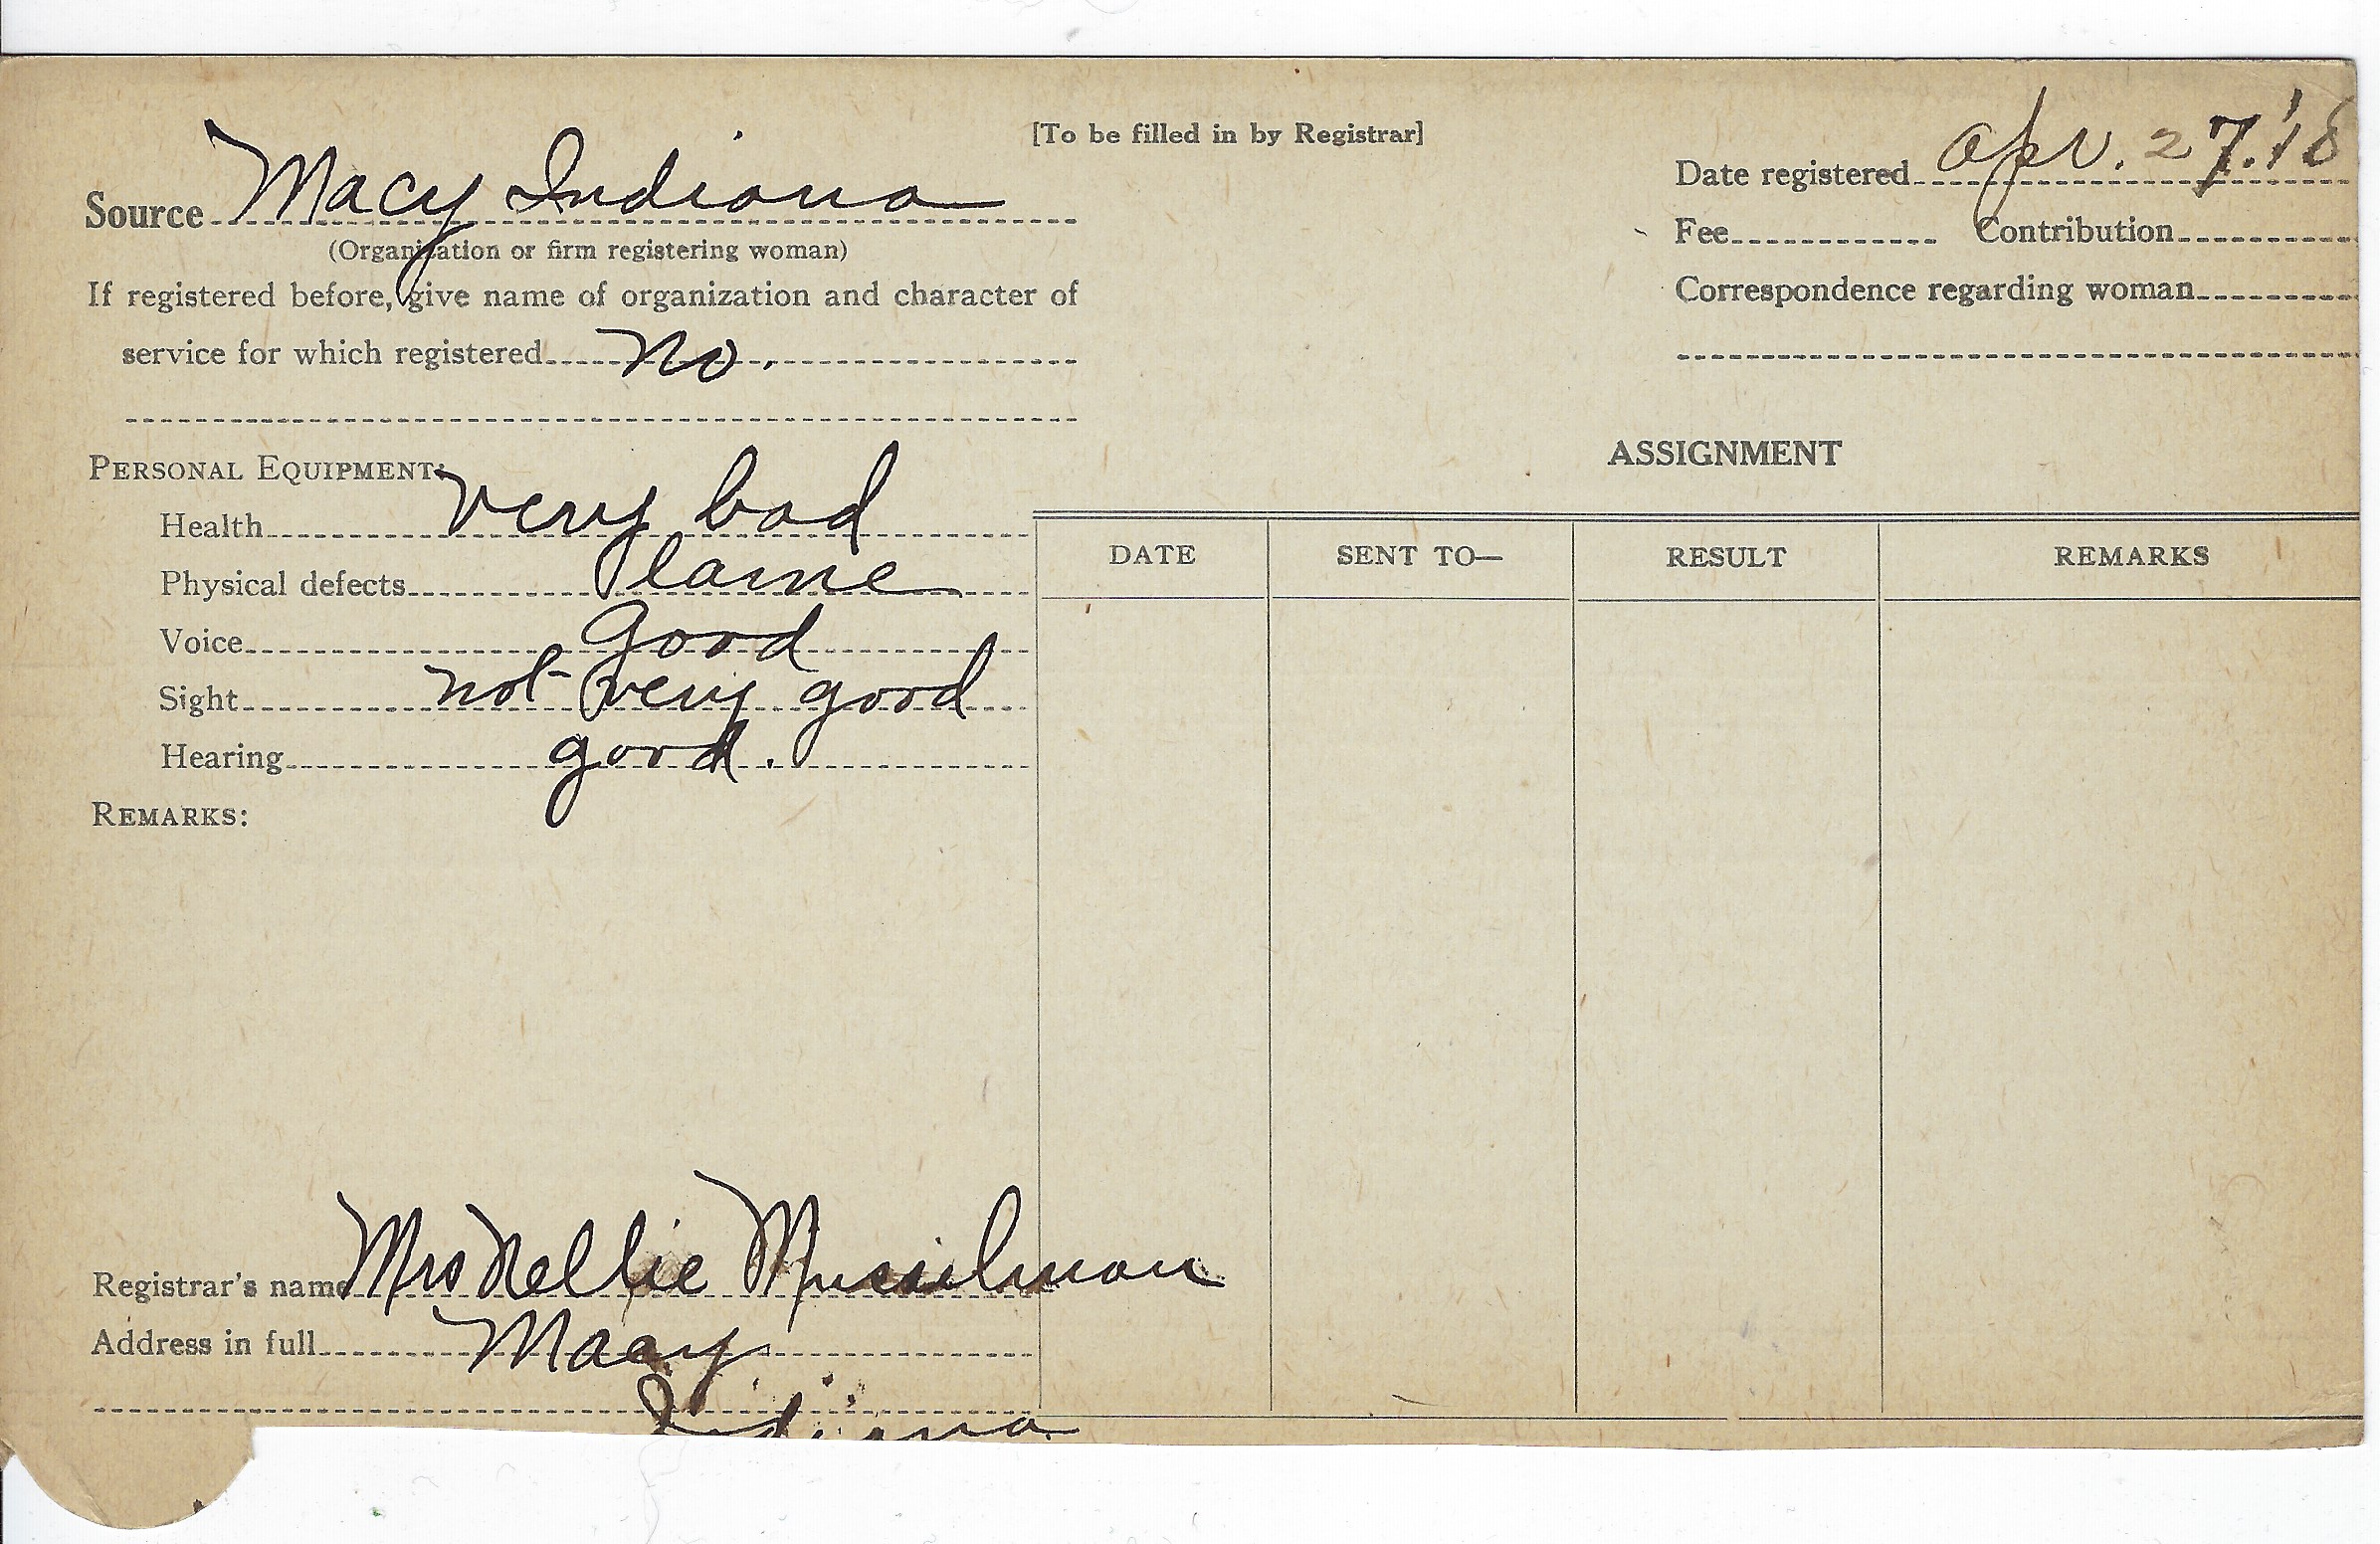 [To be filled in by Registrar]
Source Macy Indiana
(Organization or firm registering woman)
If registered before, give name of organization and character of
service for which registered no.
Date registered Apr. 27. '18
Fee Contribution
Correspondence regarding woman
PERSONAL EQUIPMENT:
Health very bad
Physical defects lame
Voice Good
Sight not very good
Hearing good.
REMARKS:
ASSIGNMENT
DATE SENT TO— RESULT REMARKS
Registrar's name Mrs Nellie Musselman
Address in full Macy
Indiana